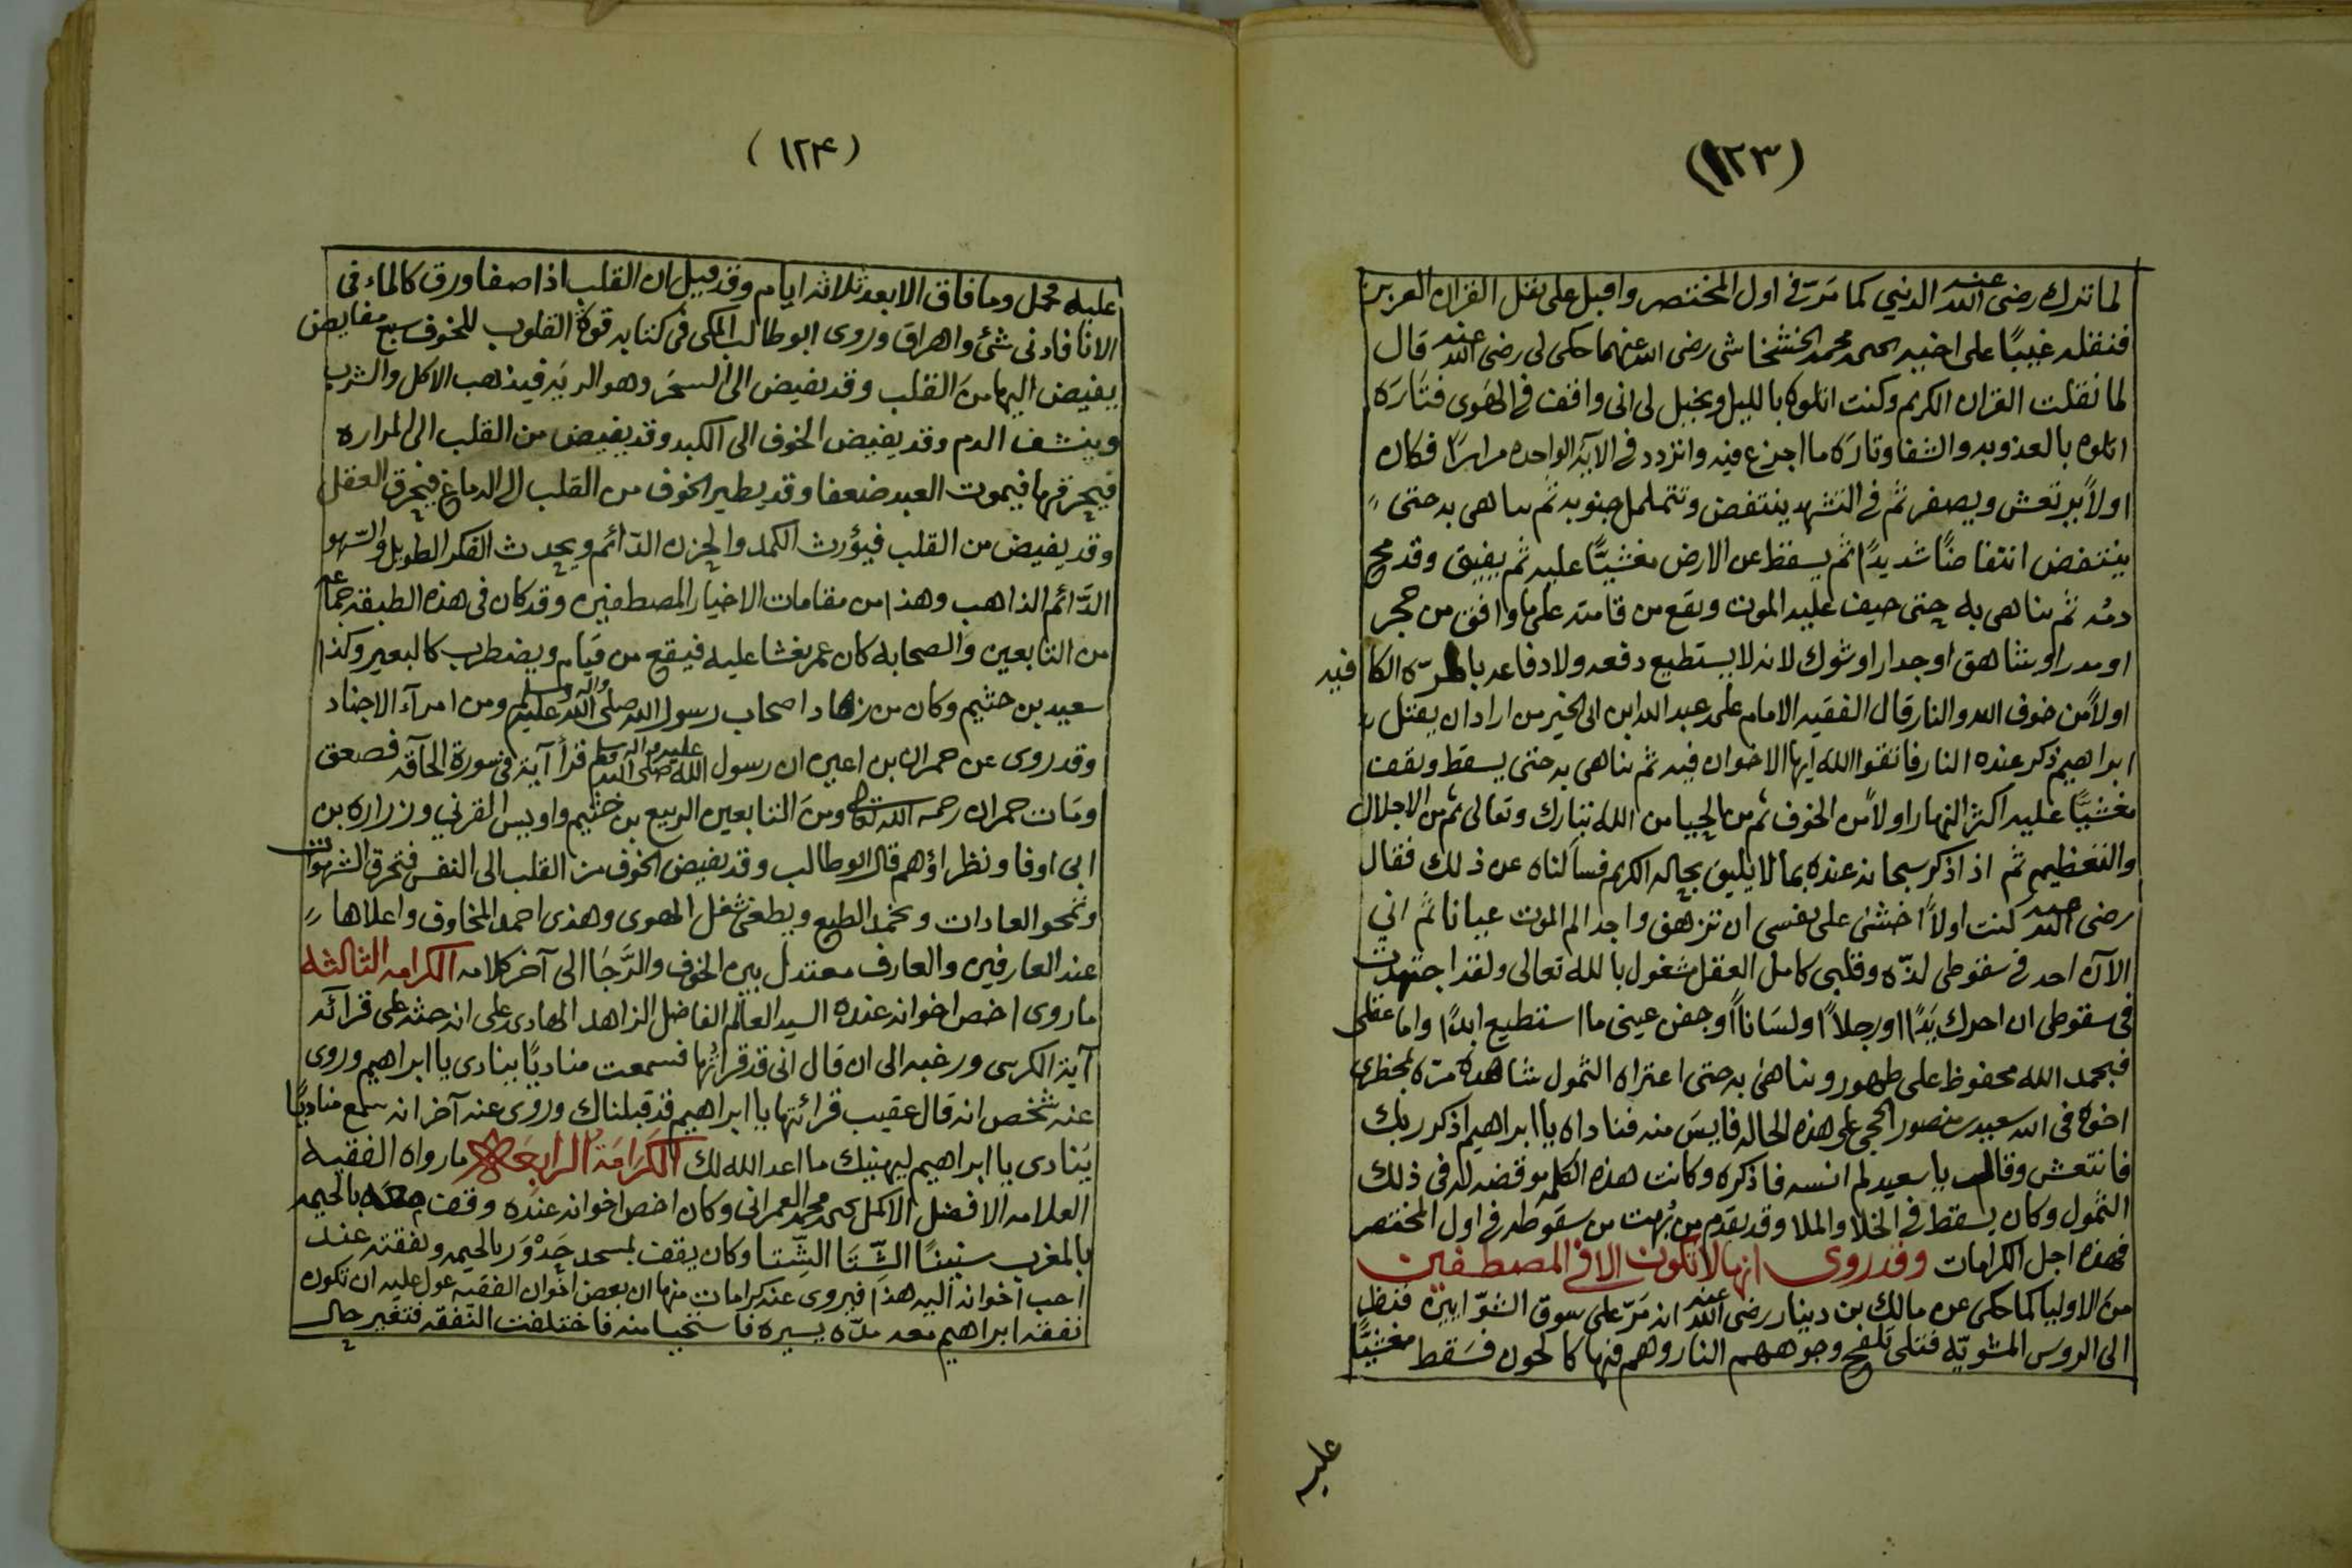 (١٢٣)
لما ترك رضى الله عنه الدني كما مرّت فى اول المختصر واقبل على نقل القران العزيز
فنقله غيبًا على اخيه يحيى محمد الخشخاشى رضى الله عنهما حكى لى رضى الله عنه قال
لما نقلت القران الكريم وكنت اتلوه بالليل ويخيل لى انى واقف فى الهوى فتارَه
اتلوه بالعذوبه والشفا وتارَه ما اجزع فيه واتردد فى الآية الواحده مرارًا فكان
اولاً يرتعش ويصفر ثم فى التشهد ينتفض وتتململ جنوبه ثم تناهى به حتى
ينتفض انتفاضًا شديدًا ثم يسقط عن الارض مغشيًّا عليه ثم يفيق وقد مج
دمه ثم تناهى به حتى خيف عليه الموت ويقع من قامته على ما وافق من حجر
او مدر او شاهق او جدار او شوك لانه لا يستطيع دفعه ولا دفاعه بالمرّه الكافيه
اولاً من خوف الله والنار قال الفقيه الامام على عبد الله ابن ابى الخير من اراد ان يقتل
ابراهيم ذكر عنده النار فاتقوا الله ايها الاخوان فيه ثم تناهى به حتى يسقط ويقف
مغشيًّا عليه اكثر النهار اولاً من الخوف ثم من الحيا من الله تبارك وتعالى ثم من الاجلال
والتعظيم ثم اذا ذكر سبحانه عنده بما لا يليق بجاله الكريم فسألناه عن ذلك فقال
رضى الله عنه كنت اولاً اخشى على نفسى ان تزهق واجد الم الموت عيانا ثم انى
الآن احد فى سقوطى لذّه وقلبى كامل العقل مشغول بالله تعالى ولقد اجتهدت
فى سقوطى ان احرك يَدًا او رجلاً او لسَاناً او جفن عينى ما استطيع ابدًا واما عقلى
فبحمد الله محفوظ على طهور وتناهى به حتى اعتراه الثمول شاهده مرّه بمحظرى
اخوه فى الله سعيد بن منصور الحجى على هذه الحاله فايسَ منه فناداه يا ابراهيم اذكر ربك
فانتعش وقال يا سعيد لم انسه فاذكره وكانت هذه الكلمه موقضه له فى ذلك
الثمول وكان يسقط فى الخلا والملا وقد يقدم من بُهت من سقوطه فى اول المختصر
فهذه اجل الكرامات وقد روى انها لا تكون الا فى المصطفين
من الاوليا كما حكى عن مالك بن دينار رضى الله عنه انه مَرّ على سوق الشوّايين فنظر
الى الروس المشويّه فتلى تلفح وجوههم النار وهم فيها كالحون فسَقط مغشيًّا
عليه
(١٢٤)
عليه فحمل وما فاق الا بعد ثلاثه ايام وقد قيل ان القلب اذا صفا ورق كالماء فى
الانا فادنى شئ واهراق وروى ابو طالب المكى فى كتابه قوة القلوب للخوف سبع مفايض
يفيض اليها منَ القلب وقد يفيض الى السحَر وهو الريَه فيذهب الاكل والشرب
وينشف الدم وقد يفيض الخوف الى الكبد وقد يفيض من القلب الى المراره
فيحرقها فيموت العبد ضعفا وقد يطير الخوف من القلب الى الدماغ فيحرق العقل
وقد يفيض من القلب فيؤرث الكمد والحزن الدّائم ويحدث الفكر الطويل والسّهو
الدّائم الذاهب وهذا من مقامات الاخيار المصطفين وقد كان فى هذه الطبقه جماعه
من التابعين والصحابه كان عمر يغشا عليه فيقع من قيام ويضطرب كالبعير وكذا
سعيد بن حثيم وكان من زهاد اصحاب رسول الله صلى الله عليه واله وسلم ومن امرآء الاجناد
وقد روى عن حمران بن اعين ان رسول الله صلى الله عليه واله وسلم قرأ آية فى سورة الحآقه فصعق
ومَات حمران رحمه الله تعالى ومن التابعين الربيع بن خثيم واويس القرني وزراره بن
ابى اوفا ونظراؤهم قال ابو طالب وقد يفيض الخوف من القلب الى النفس فتحرق الشهوات
وتمحو العادات وتخمد الطبع ويطفى شغل الهوى وهذى احمد المخاوف واعلاها
عند العارفين والعارف معتدل بين الخوف والرَّجَا الى آخر كلامه الكرامه الثالثه
ما روى اخص اخوانه عنده السيد العالم الفاضل الزاهد الهادى على انه حثه على قرآئه
آية الكرسى ورغبه الى ان قال انى قد قراتها فسمعت مناديًا ينادى يا ابراهيم وروى
عنه شخص انه قال عقيب قرائتها يا ابراهيم قد قبلناك وروى عنه آخر انه سمع مناديًا
يَنادى يا ابراهيم ليهنيك ما اعد الله لك الكَرَامَة الرابعَه ما رواه الفقيه
العلامه الافضل الاكمل يحيى محمد العمرانى وكان اخص اخوانه عنده وقفت معه بالحيمه
بالمغرب سنينًا الشِّتَا الشِّتا وكان يقف بمسجد جَدْوَر بالحيمه ونفقته عند
احب اخوانه اليه هذا فيروى عنه كرامات منها ان بعض اخوان الفقيه عول عليه ان تكون
نفقه ابراهيم معه مدّه يسيره فاستحيا منه فاختلفت النّفقه فتغير حال